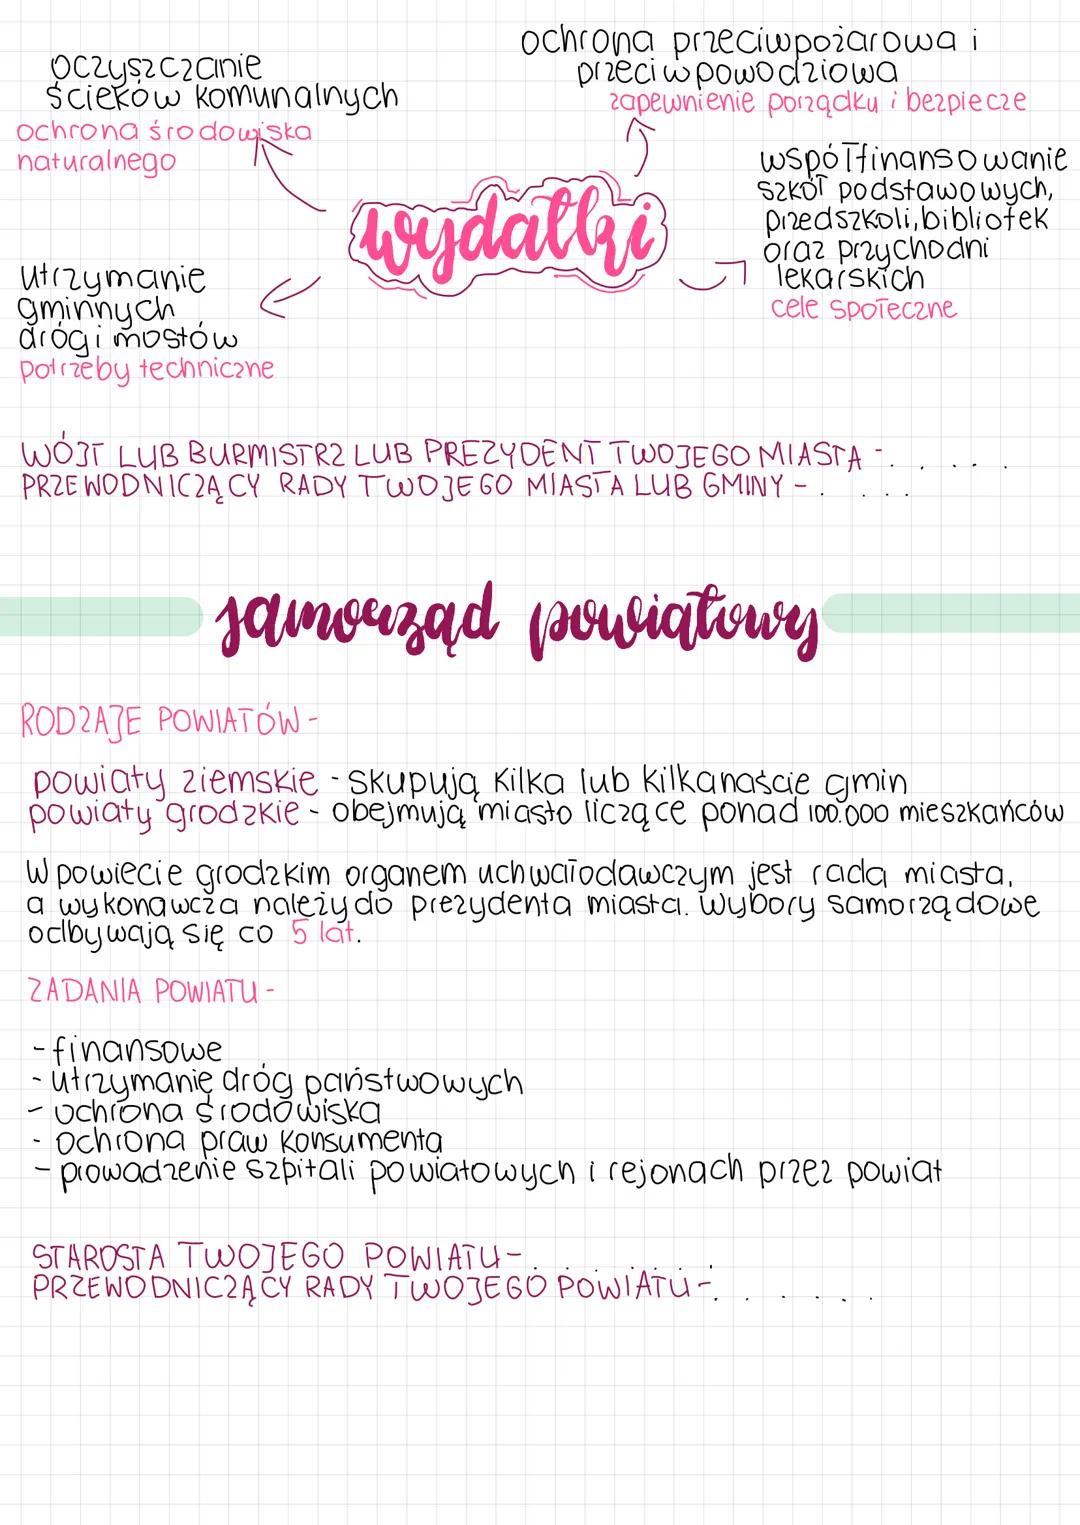 oczyszczanie
ścieków komunalnych
ochrona środowiska
naturalnego
ochrona przeciwpożarowa i
przeciwpowodziowa
zapewnienie porządku i bezpiecze
wydatki
współfinansowanie
szkół podstawowych,
przedszkoli, bibliotek
oraz przychodni
lekarskich
cele społeczne
utrzymanie
gminnych
dróg i mostów
potrzeby techniczne
WÓJT LUB BURMISTRZ LUB PREZYDENT TWOJEGO MIASTA - . . . . .
PRZEWODNICZĄCY RADY TWOJEGO MIASTA LUB GMINY - . . . .
samorząd powiatowy
RODZAJE POWIATÓW -
powiaty ziemskie - skupują kilka lub kilkanaście gmin
powiaty grodzkie - obejmują miasto liczące ponad 100.000 mieszkańców
W powiecie grodzkim organem uchwałodawczym jest rada miasta,
a wykonawcza należy do prezydenta miasta. Wybory samorządowe
odbywają się co 5 lat.
ZADANIA POWIATU -
- finansowe
- utrzymanię dróg państwowych
- ochrona środowiska
- ochrona praw konsumenta
- prowadzenie szpitali powiatowych i rejonach przez powiat
STAROSTA TWOJEGO POWIATU - . . . . . . .
PRZEWODNICZĄCY RADY TWOJEGO POWIATU - . . . . . .